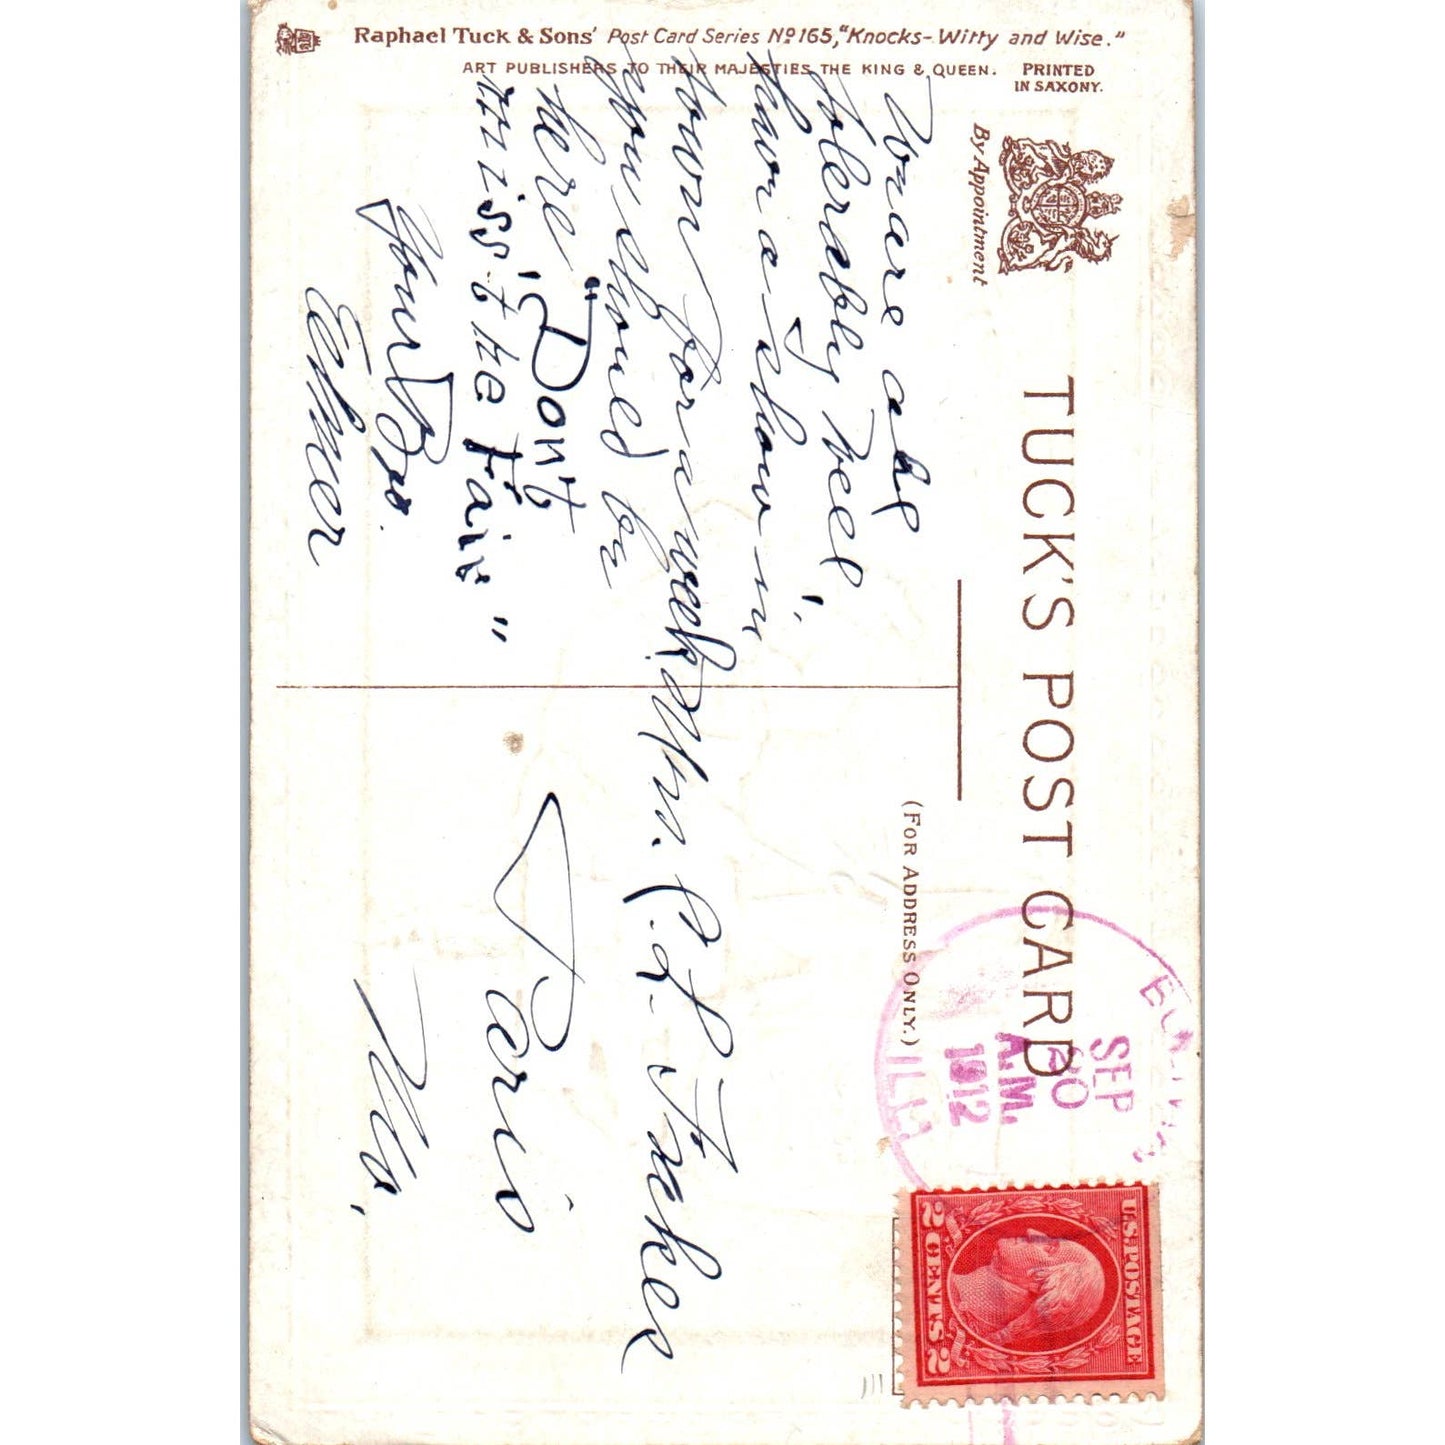 Raphael Tuck & Sons' Post Card Series Nº 165, "Knocks-Witty and Wise."
ART PUBLISHERS TO THEIR MAJESTIES THE KING & QUEEN. PRINTED
IN SAXONY.
By Appointment
TUCK'S POST CARD
(FOR ADDRESS ONLY.)
We are all
tolerably well,
have a show in
town for a week.
you should be
here "Don't
miss the Fair"
Your Bro.
Elmer
Mrs. P. L. Fraker
Paris
Mo.
SEP
20
A.M.
1912
ILL.
U.S. POSTAGE
2 CENTS 2